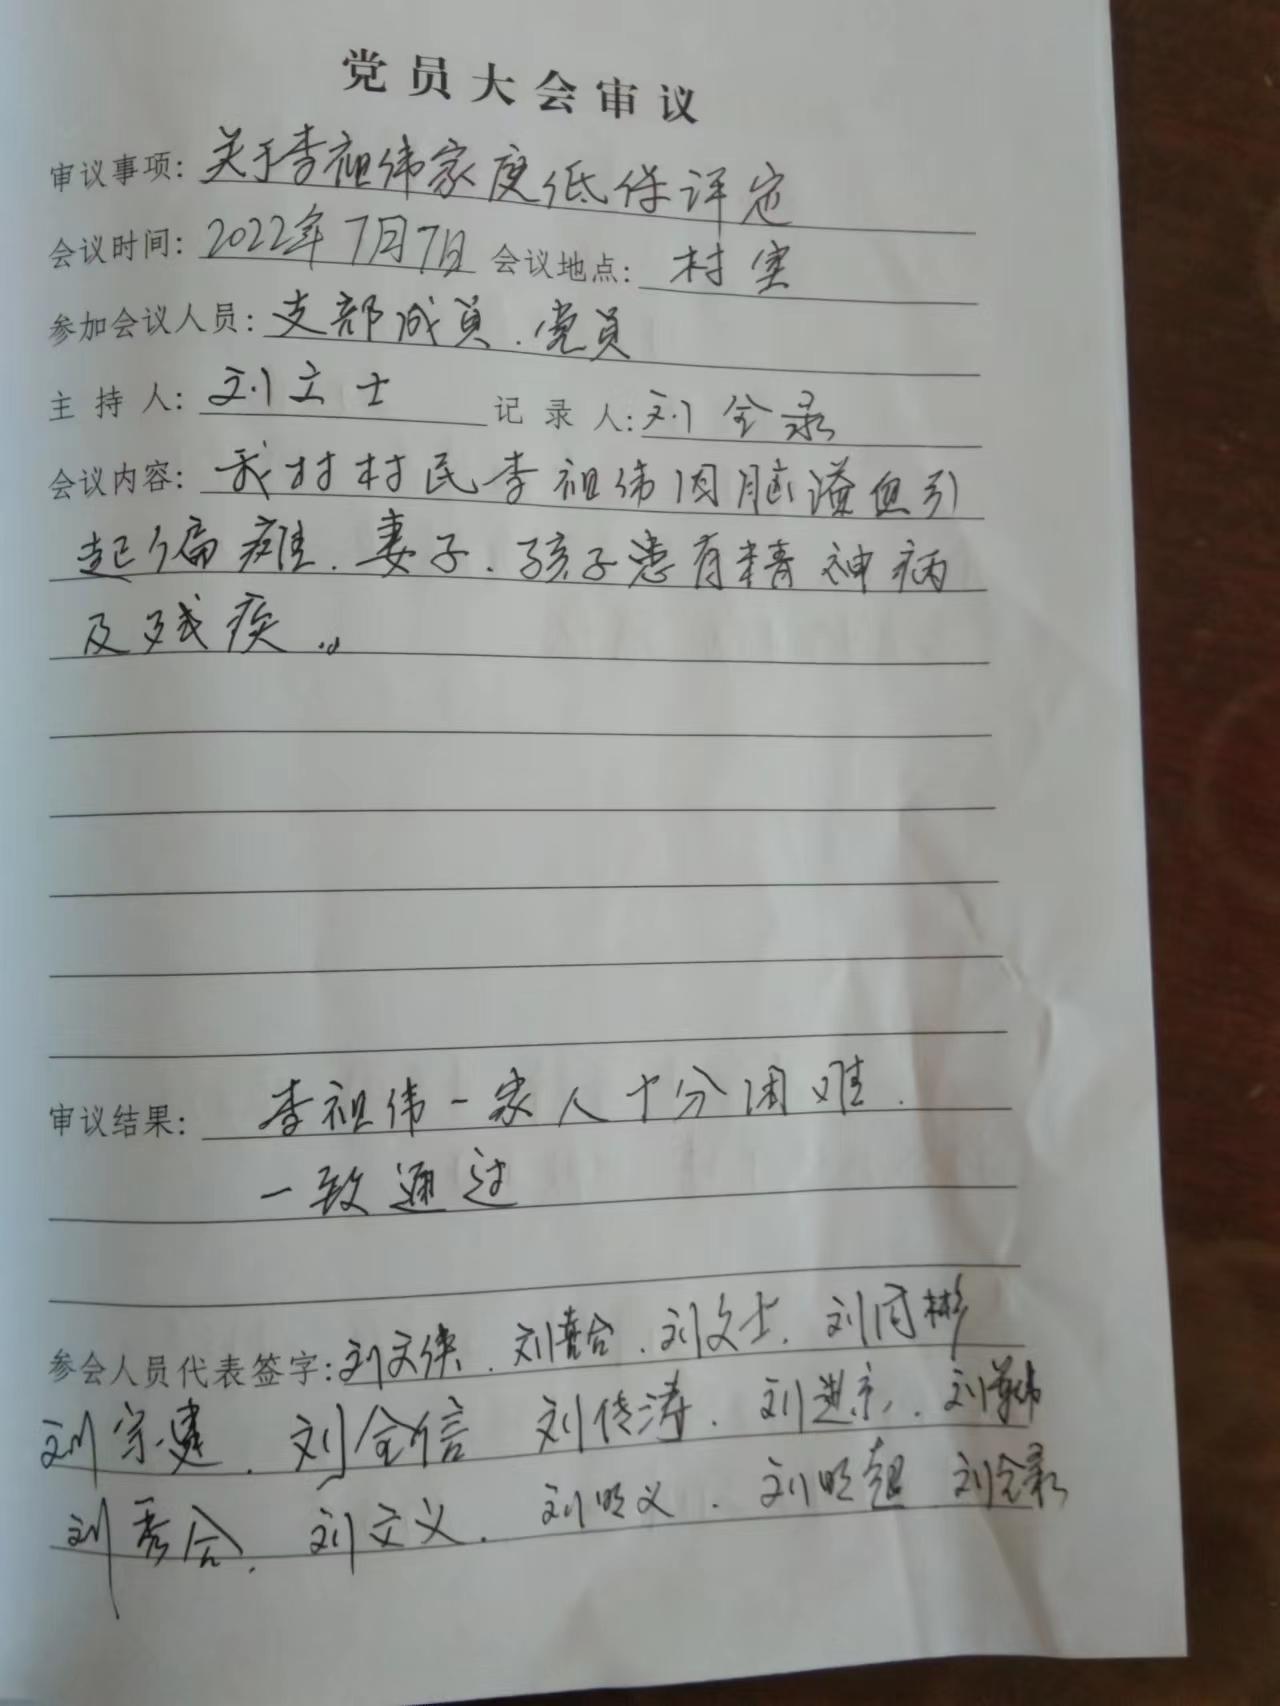 党员大会审议
审议事项:关于李祖伟家庭低保评定
会议时间:2022年7月7日 会议地点:村室
参加会议人员:支部成员、党员
主持人:刘立士 记录人:刘全录
会议内容:我村村民李祖伟因脑溢血引
起偏瘫、妻子、孩子患有精神病
及残疾。
审议结果:李祖伟一家人十分困难.
一致通过
参会人员代表签字:刘文侠、刘喜合、刘文士、刘同彬
刘宗建、刘全信 刘传涛、刘进京、刘
刘秀合、刘文义、刘明义、刘明超 刘全录